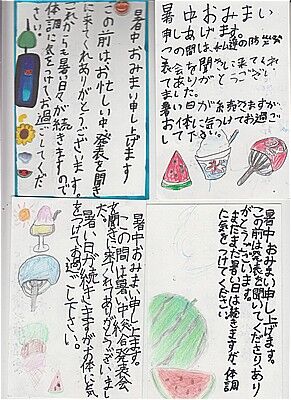 暑中おみまい申し上げます
この前はお忙しい中発表を聞き
に来てくれありがとうございます。
これからも暑い日が続きますので
体調に気をつけてお過ごしくださ
い。
暑中おみまい
申しあげます。
この間は、私達の防災発
表会を聞きに来てくれ
てありがとうござい
ました。
暑い日が続きますが、
お体に気をつけてお過ご
し下さい。
暑中おみまい申し上げます。
この間は暑い中総合発表会
を聞きに来られありがとうございまし
た。
暑い日が続きますがお体に気
をつけてお過ごし下さい。
暑中おみまい申し上げます。
この前は発表を聞いてくださりあり
がとうございます。
まだまだ暑い日は続きますが、体調
に気をつけてください。